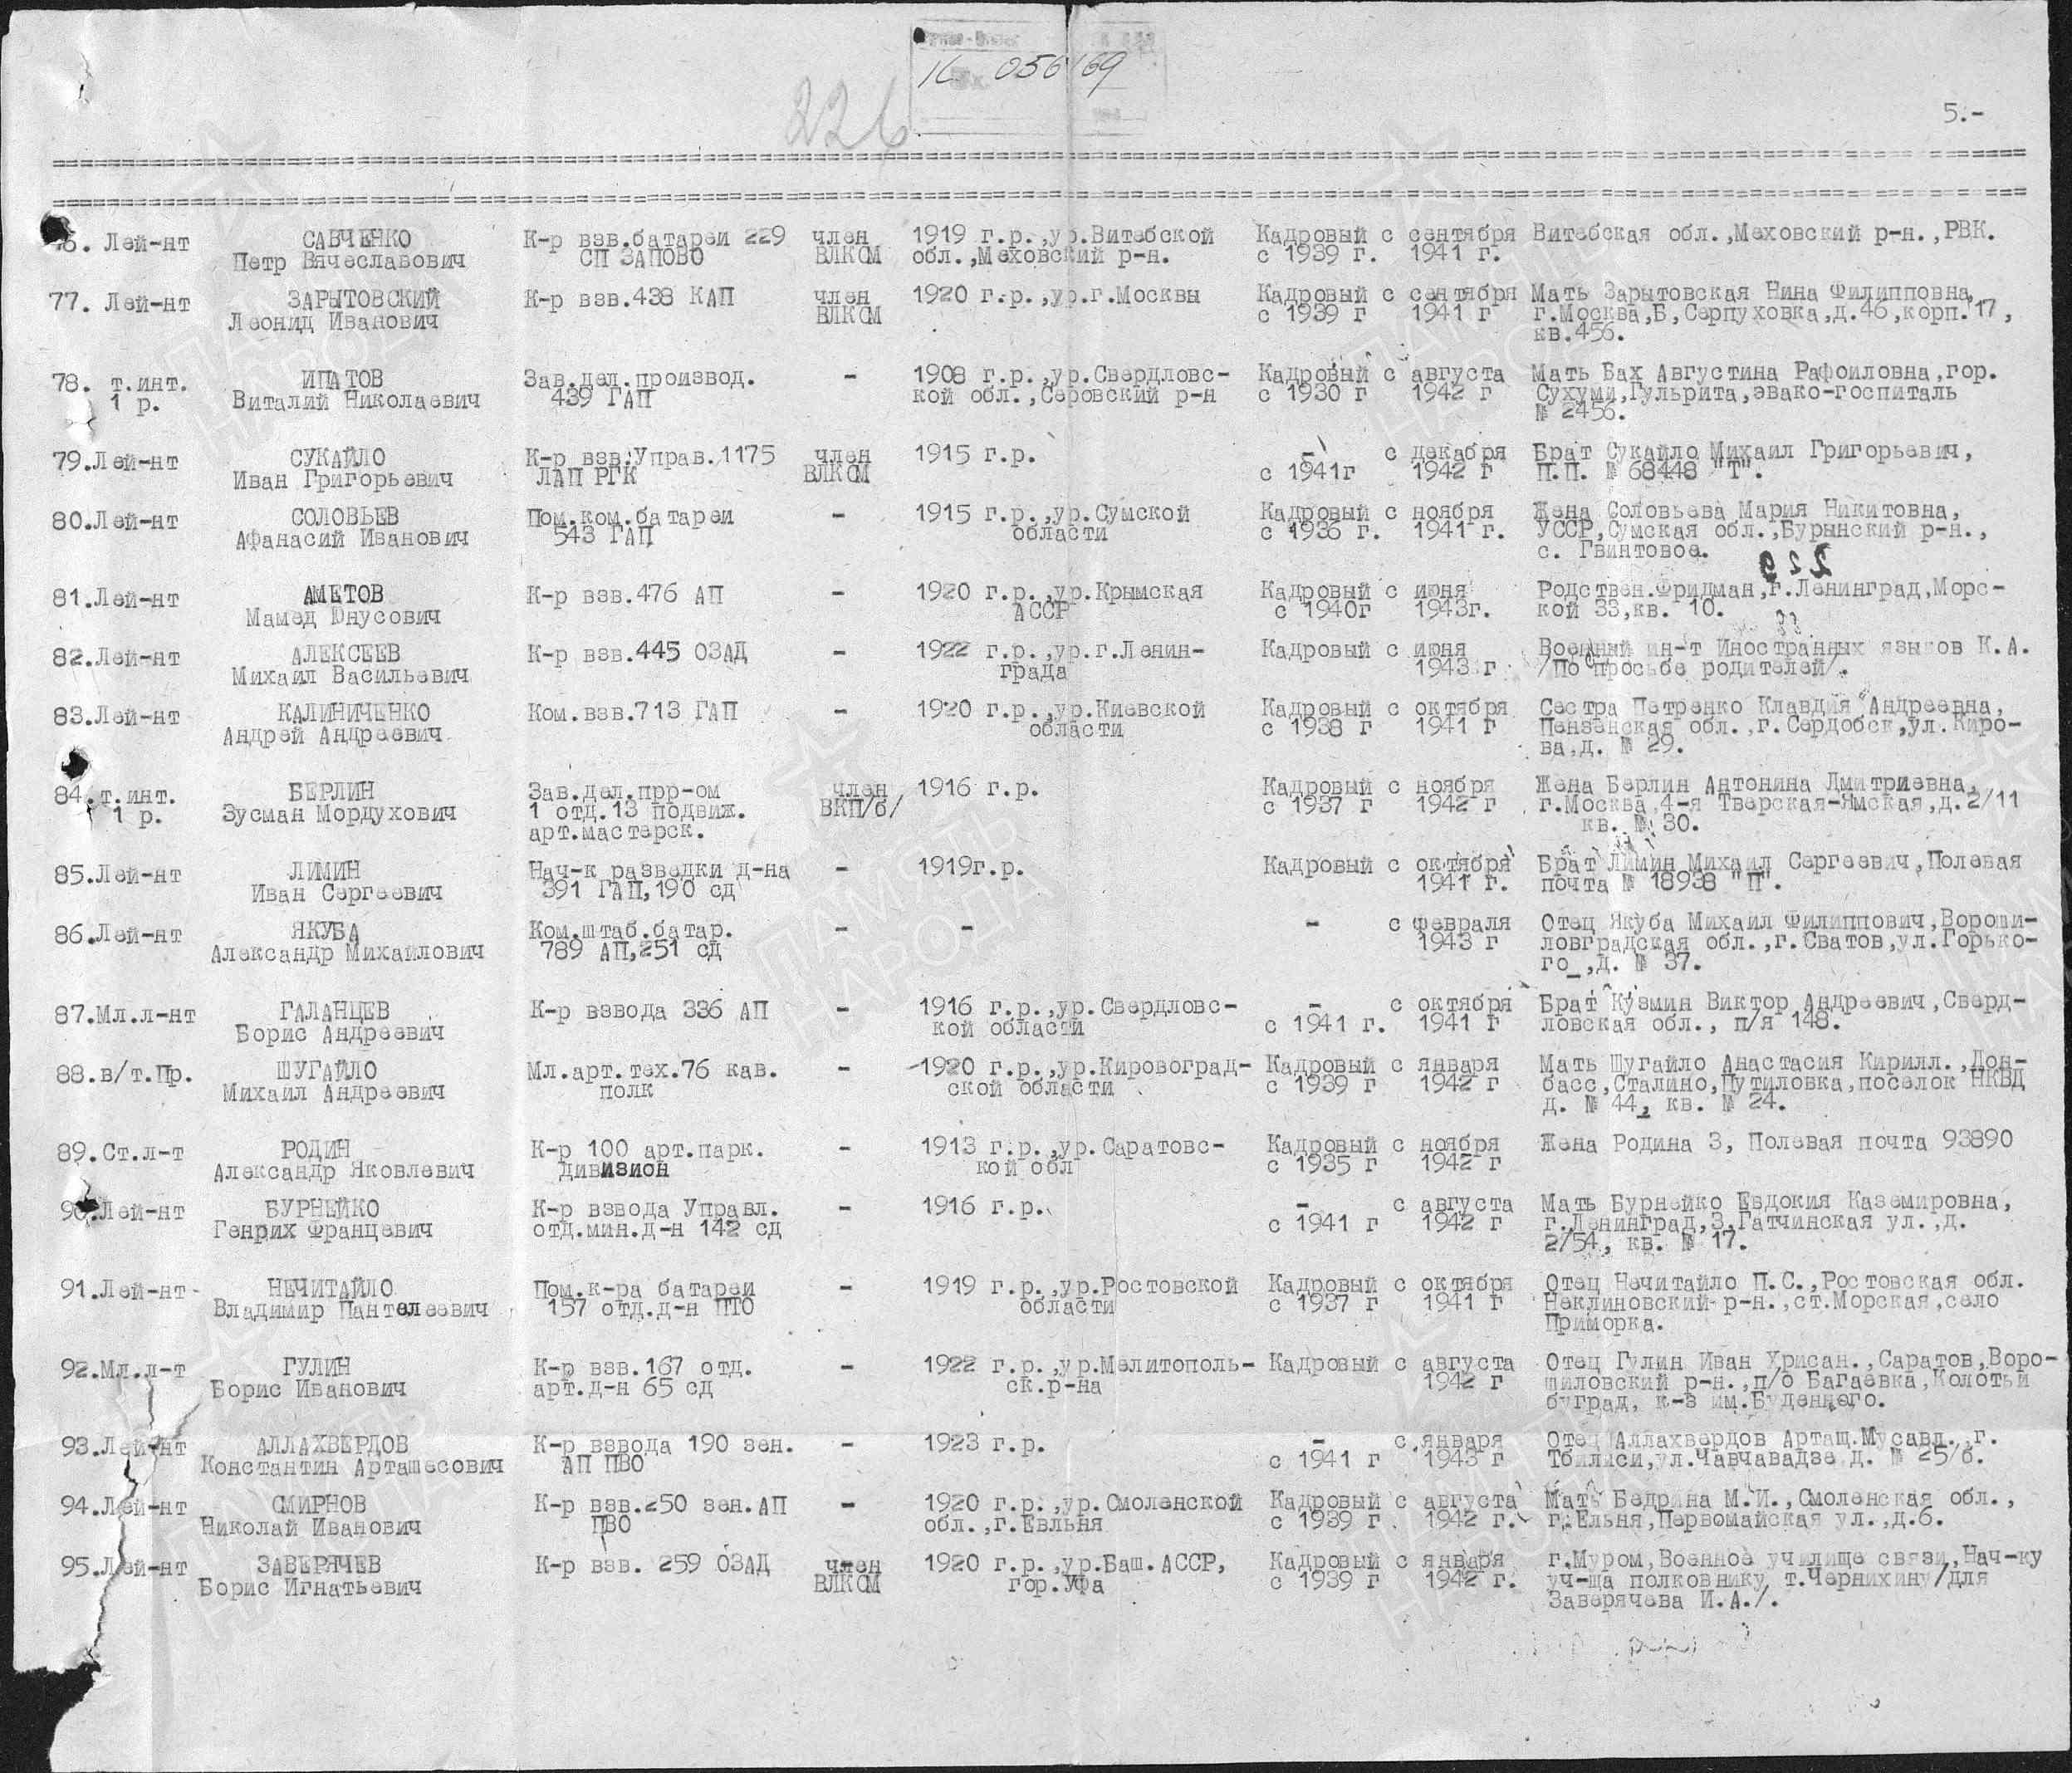 1с 056169
226
5.-
76. Лей-нт САВЧЕНКО К-р взв.батареи 229 член 1919 г.р.,ур.Витебской Кадровый с сентября Витебская обл.,Меховский р-н.,РВК.
Петр Вячеславович СП ЗАПОВО ВЛКСМ обл.,Меховский р-н. с 1939 г. 1941 г.
77. Лей-нт ЗАРЫТОВСКИЙ К-р взв.438 КАП член 1920 г.р.,ур.г.Москвы Кадровый с сентября Мать Зарытовская Нина Филипповна,
Леонид Иванович ВЛКСМ с 1939 г 1941 г г.Москва,Б,Серпуховка,д.46,корп.17,
кв.456.
78. т.инт. ИПАТОВ Зав.дел.производ. - 1908 г.р.,ур.Свердловс- Кадровый с августа Мать Бах Августина Рафоиловна,гор.
1 р. Виталий Николаевич 439 ГАП кой обл.,Серовский р-н с 1930 г 1942 г Сухуми,Гульрита,эвако-госпиталь
№ 2456.
79.Лей-нт СУКАЙЛО К-р взв.Управ.1175 член 1915 г.р. - с декабря Брат Сукайло Михаил Григорьевич,
Иван Григорьевич ЛАП РГК ВЛКСМ с 1941г 1942 г П.П. № 68448 "Т".
80.Лей-нт СОЛОВЬЕВ Пом.ком.батареи - 1915 г.р.,ур.Сумской Кадровый с ноября Жена Соловьева Мария Никитовна,
Афанасий Иванович 543 ГАП области с 1936 г. 1941 г. УССР,Сумская обл.,Бурынский р-н.,
с. Гвинтовое.
81.Лей-нт АМЕТОВ К-р взв.476 АП - 1920 г.р.,ур.Крымская Кадровый с июня Родствен.Фридман,г.Ленинград,Морс-
Мамед Юнусович АССР с 1940г 1943г. кой 33,кв. 10.
82.Лей-нт АЛЕКСЕЕВ К-р взв.445 ОЗАД - 1922 г.р.,ур.г.Ленин- Кадровый с июня Военный ин-т Иностранных языков К.А.
Михаил Васильевич града 1943 г /По просьбе родителей/.
83.Лей-нт КАЛИНИЧЕНКО Ком.взв.713 ГАП - 1920 г.р.,ур.Киевской Кадровый с октября Сестра Петренко Клавдия Андреевна,
Андрей Андреевич области с 1938 г 1941 г Пензенская обл.,г.Сердобск,ул.Киро-
ва,д. № 29.
84.т.инт. БЕРЛИН Зав.дел.прр-ом член 1916 г.р. Кадровый с ноября Жена Берлин Антонина Дмитриевна,
1 р. Зусман Мордухович 1 отд.13 подвиж. ВКП/б/ с 1937 г 1942 г г.Москва,4-я Тверская-Ямская,д.2/11
арт.мастерск. кв. № 30.
85.Лей-нт ЛИМИН Нач-к разведки д-на - 1919г.р. Кадровый с октября Брат Лимин Михаил Сергеевич,Полевая
Иван Сергеевич 391 ГАП,190 сд 1941 г. почта № 18938 "П".
86.Лей-нт ЯКУБА Ком.штаб.батар. - - - с февраля Отец Якуба Михаил Филиппович,Вороши-
Александр Михайлович 789 АП,251 сд 1943 г ловградская обл.,г.Сватов,ул.Горько-
го_,д. № 37.
87.Мл.л-нт ГАЛАНЦЕВ К-р взвода 336 АП - 1916 г.р.,ур.Свердловс- - с октября Брат Кузмин Виктор Андреевич,Сверд-
Борис Андреевич кой области с 1941 г. 1941 г ловская обл., п/я 148.
88.в/т.Пр. ШУГАЙЛО Мл.арт.тех.76 кав. - 1920 г.р.,ур.Кировоград- Кадровый с января Мать Шугайло Анастасия Кирилл.,Дон-
Михаил Андреевич полк ской области с 1939 г 1942 г басс,Сталино,Путиловка,поселок НКВД
д. № 44, кв. № 24.
89.Ст.л-т РОДИН К-р 100 арт.парк. - 1913 г.р.,ур.Саратовс- Кадровый с ноября Жена Родина З, Полевая почта 93890
Александр Яковлевич дивизион кой обл с 1935 г 1942 г
90.Лей-нт БУРНЕЙКО К-р взвода Управл. - 1916 г.р. - с августа Мать Бурнейко Евдокия Каземировна,
Генрих Францевич отд.мин.д-н 142 сд с 1941 г 1942 г г.Ленинград,3,Гатчинская ул.,д.
2/54, кв. № 17.
91.Лей-нт- НЕЧИТАЙЛО Пом.к-ра батареи - 1919 г.р.,ур.Ростовской Кадровый с октября Отец Нечитайло П.С.,Ростовская обл.
Владимир Пантелеевич 157 отд.д-н ПТО области с 1937 г 1941 г Неклиновский р-н.,ст.Морская,село
Приморка.
92.Мл.л-т ГУЛИН К-р взв.167 отд. - 1922 г.р.,ур.Мелитополь- Кадровый с августа Отец Гулин Иван Хрисан.,Саратов,Воро-
Борис Иванович арт.д-н 65 сд ск.р-на 1942 г шиловский р-н.,п/о Багаевка,Колотый
буград, к-з им.Буденного.
93.Лей-нт АЛЛАХВЕРДОВ К-р взвода 190 зен. - 1923 г.р. - с января Отец Аллахвердов Арташ.Мусавл.,г.
Константин Арташесович АП ПВО с 1941 г 1943 г Тбилиси,ул.Чавчавадзе д. № 25/б.
94.Лей-нт СМИРНОВ К-р взв.250 зен.АП - 1920 г.р.,ур.Смоленской Кадровый с августа Мать Бедрина М.И.,Смоленская обл.,
Николай Иванович ПВО обл.,г.Евльня с 1939 г. 1942 г. г.Ельня,Первомайская ул.,д.6.
95.Лей-нт ЗАВЕРЯЧЕВ К-р взв. 259 ОЗАД член 1920 г.р.,ур.Баш.АССР, Кадровый с января г.Муром,Военное училище связи,Нач-ку
Борис Игнатьевич ВЛКСМ гор.Уфа с 1939 г 1942 г. уч-ща полковнику т.Чернихину/для
Заверячева И.А./.